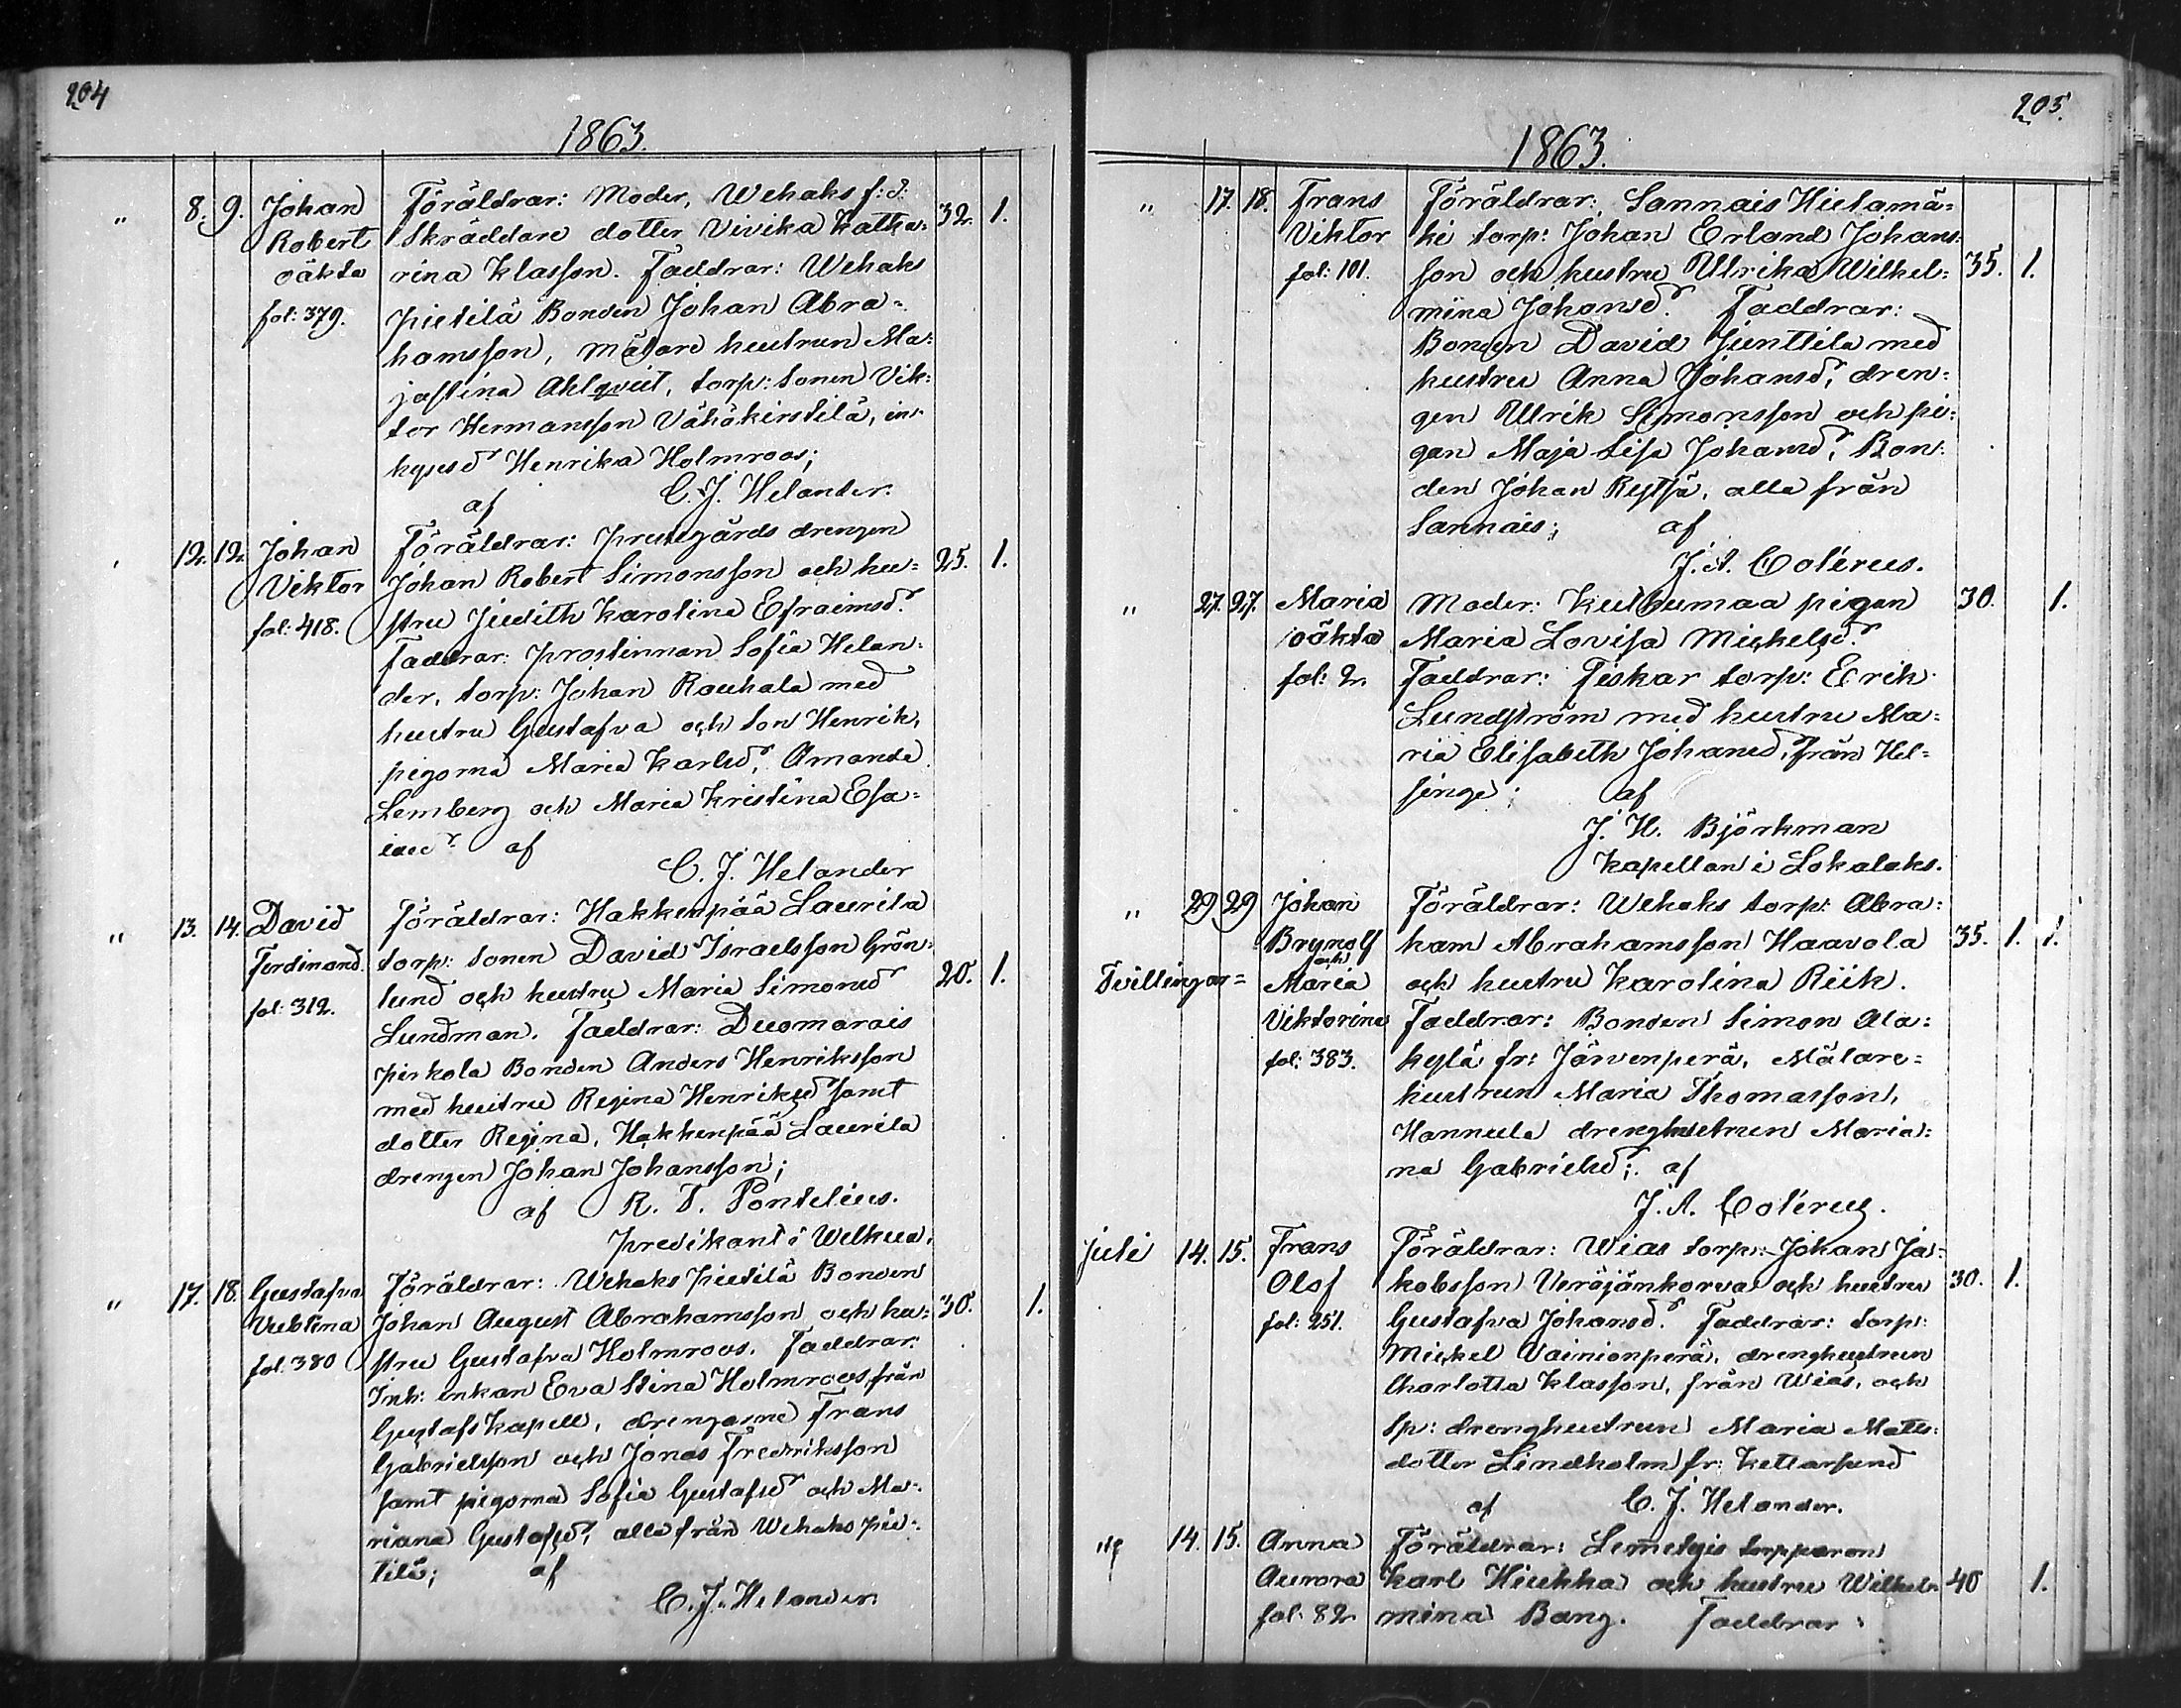 204
1863.
" 8. 9. Johan Föräldrar: Moder, Wehaks f: d: 32. 1.
Robert Skräddare dotter Vivika Katha-
oäkta rina Klasson. Faddrar: Wehaks
fol: 379. Pietilä Bonden Johan Abra-
hamsson, Målare hustrun Ma-
jastina Ahlqvist, torp: sonen Vik-
tor Hermansson Vähäkirstilä, in-
hyses d:r Henrika Holmroos;
af C. J. Helander.
" 12. 12. Johan Föräldrar: Prestgårds drengen 25. 1.
Viktor Johan Robert Simonsson och hu-
fol: 418. stru Judith Karolina Efraimsd:r
Faddrar: Prostinnan Sofia Helan-
der, torp: Johan Rauhala med
hustru Gustafva och son Henrik,
pigorna Maria Karlsd:r, Amanda
Lemberg och Maria Kristina Esa-
iasd:r af
C. J. Helander
" 13. 14. David Föräldrar: Hakkenpää Laurila
Ferdinand. torp: sonen David Israelsson Grön- 20. 1.
fol: 312. lund och hustru Maria Simonsd:r
Lundman. Faddrar: Duomarais
Pirkola Bonden Anders Henriksson
med hustru Regina Henriksd:r samt
dotter Regina, Hakkenpää Laurila
drengen Johan Johansson;
af R. T. Pontelius.
Predikant i Welkua.
" 17. 18. Gustafva Föräldrar: Wehaks Pietilä Bonden 30. 1.
Johan August Abrahamsson och hu-
fol: 380 stru Gustafva Holmroos. Faddrar:
Inh: enkan Eva Stina Holmroos från
Gustafs Kapell, drengarne Frans
Gabrielsson och Jonas Fredriksson
samt pigorna Sofia Gustafsd:r och Ma-
riana Gustafsd:r, alla från Wehaks Pie-
tilä; af
C. J. Helander
205.
1863.
" 17. 18. Frans Föräldrar: Sannais Hietamä-
Viktor ki torp: Johan Erland Johans-
fol: 101. son och hustru Ulrika Wilhel- 35. 1.
mina Johansd:r. Faddrar:
Bonden David Junttila med
hustru Anna Johansd:r, dren-
gen Ulrik Simonsson och pi-
gan Maja Lisa Johansd:r, Bon-
den Johan Rytsä, alla från
Sannais; af
J. A. Cotérus.
" 27. 27. Maria Moder: Kuthumaa pigan 30. 1.
oäkta Maria Lovisa Mickelsd:r
fol: 2. Faddrar: Fiskar torp: Erik
Lundström med hustru Ma-
ria Elisabeth Johansd:r, från Hel-
singe; af
J. H. Björkman
Kapellan i Lokalaks.
" 29 29 Johan Föräldrar: Wehaks torp: Abra-
Brynolf ham Abrahamsson Haavola 35. 1. 1.
och
Tvillingar= Maria och hustru Karolina Riik.
Viktorina Faddrar: Bonden Simon Ala-
fol: 383. kylä fr: Järvenperä, Målare-
hustrun Maria Thomasson,
Hannula drenghustrun Maria-
na Gabrielsd:r; af
J. A. Cotérus.
Juli 14. 15. Frans Föräldrar: Wias torp: Johan Ja-
Olof kobsson Veräjänkorva och hustru 30. 1.
fol: 251. Gustafva Johansd:r. Faddrar: torp:
Mickel Vainionperä, drenghustrun
Charlotta Klasson, från Wias, och
sp: drenghustrun Maria Matts-
dotter Lindholm fr: Kettarsund
af C. J. Helander.
" 14. 15. Anna Föräldrar: Lemetyis torpparen
Aurora Karl Hiukka och hustru Wilhel- 40 1.
fol: 82 mina Bang. Faddrar: